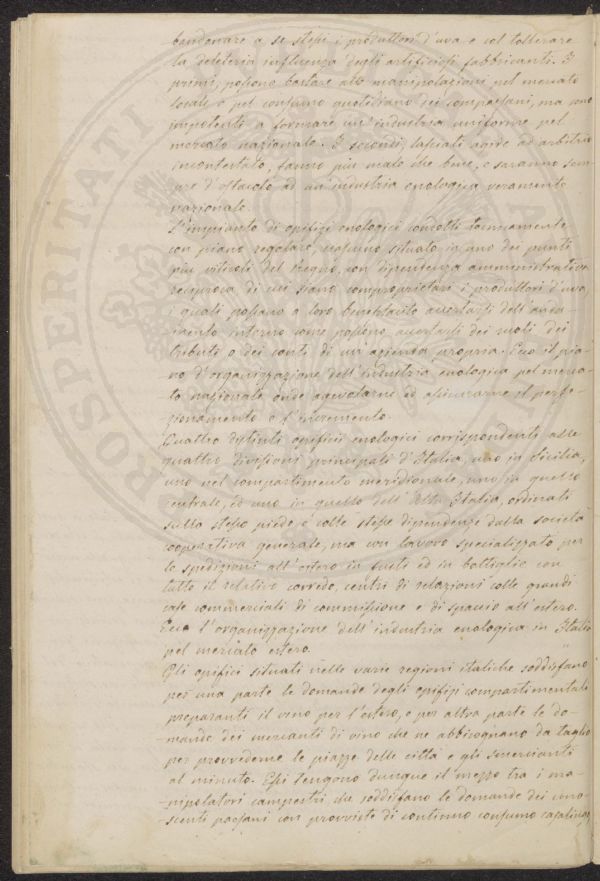 bandonare a se stessi i produttori d'uva e col tollerare
la deleteria influenza degli artificiosi fabbricanti. I
primi, possono bastare alle manipolazioni pel mercato
locale e pel consumo quotidiano dei compaesani, ma sono
impotenti a formare un'industria uniforme pel
mercato nazionale. I secondi, lasciati agire ad arbitrio
incontestato, fanno più male che bene, e saranno sem-
pre d'ostacolo ad un'industria enologica veramente
nazionale.
L'impianto di opifizi enologici condotti tecnicamente
con piano regolare, ciascuno situato in uno dei punti
più viticoli del Regno, con dipendenza amministrativa
reciproca di cui siano comproprietari i produttori d'uva
i quali possano a loro beneplacito accertarsi dell'anda-
mento interno come possono accertarsi dei ruoli dei
tributi o dei conti di un'azienda propria. Ecco il pia-
no d'organizzazione dell'industria enologica pel merca-
to nazionale onde agevolarne ed assicurarne il perfe-
zionamento e l'incremento.
Quattro distinti opifici enologici corrispondenti alle
quattro divisioni principali d'Italia, uno in Sicilia,
uno nel compartimento meridionale, uno in quello
centrale, ed uno in quello dell'Alta Italia, ordinati
sullo stesso piede e colle stesse dipendenze dalla società
cooperativa generale, ma con lavoro specializzato per
le spedizioni all'estero in fusti ed in bottiglie con
tutto il relativo corredo, centri di relazioni colle grandi
case commerciali di commissione e di spaccio all'estero.
Ecco l'organizzazione dell'industria enologica in Italia
pel mercato estero.
Gli opifici situati nelle varie regioni italiche soddisfano
per una parte le domande degli opifizi compartimentali
preparanti il vino per l'estero, e per altra parte le do-
mande dei mercanti di vino che ne abbisognano da taglio
per provvederne le piazze delle città e gli smercianti
al minuto. Essi tengono dunque il mezzo tra i ma-
nipolatori campestri che soddisfano le domande dei cono-
scenti paesani con provviste di continuo consumo casalingo,
PROSPERITATI